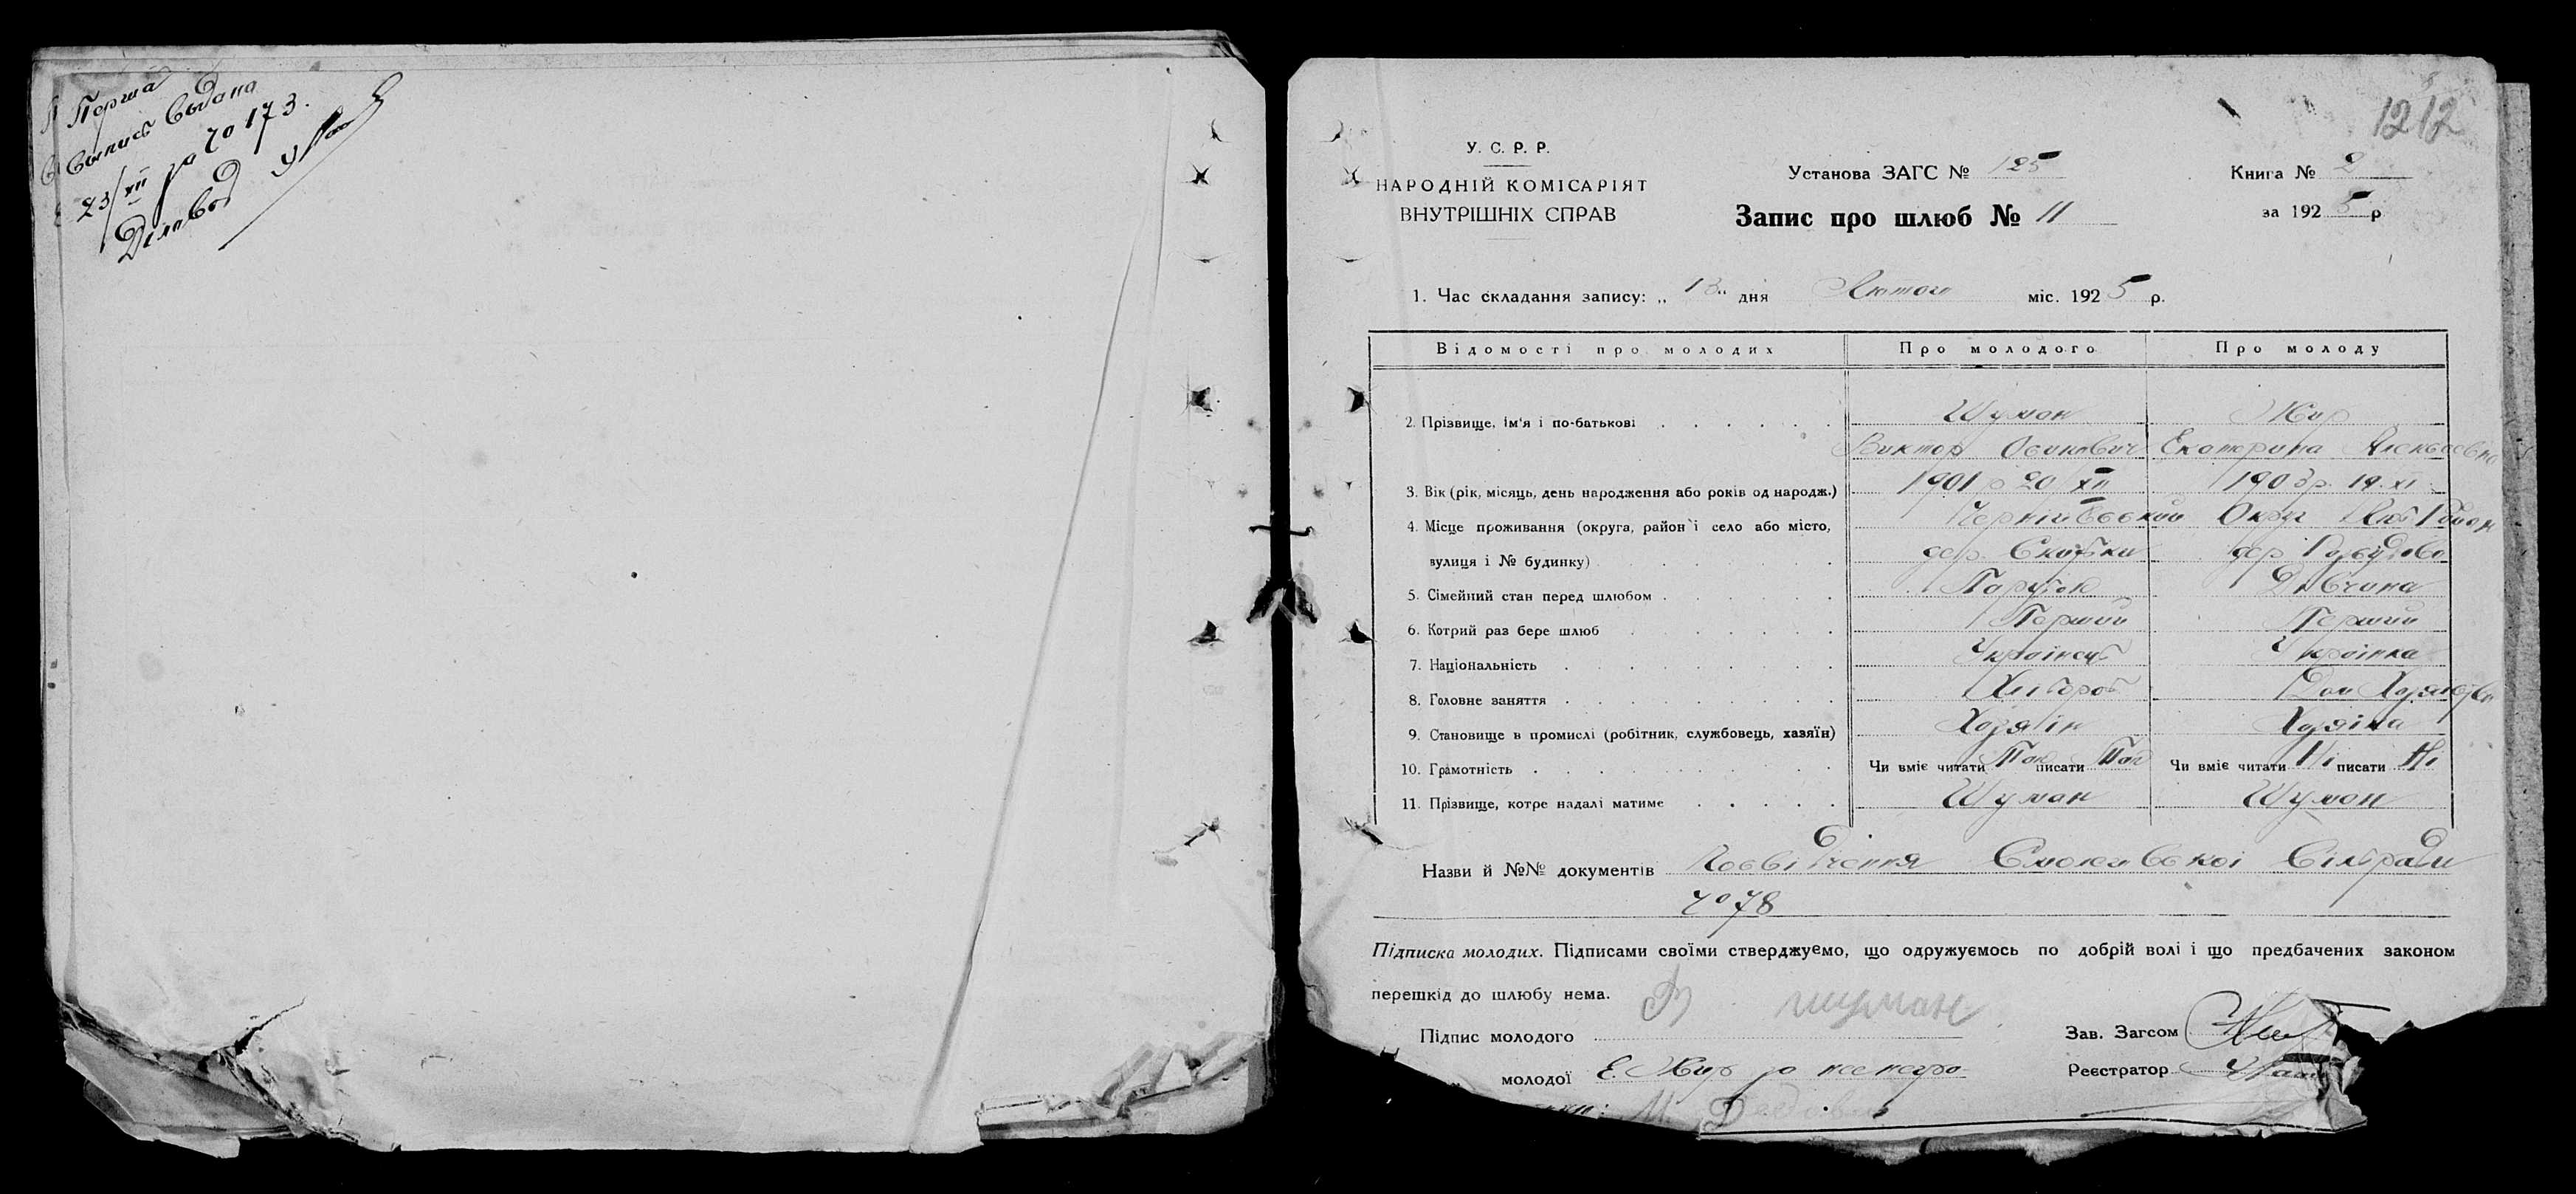 Перша
Выпись Выдана
23/XII за № 173.
Діловод
1212
У. С. Р. Р.
НАРОДНІЙ КОМІСАРІЯТ
ВНУТРІШНІХ СПРАВ
Установа ЗАГС № 125
Запис про шлюб № 11
Книга № 2
за 1925 р
1. Час складання запису: „ 13 " дня Лютого міс. 1925 р.
Відомості про молодих Про молодого Про молоду
2. Прізвище, ім'я і по-батькові Шуман Жир
Виктор Осипович Екатерина Алексеевна
3. Вік (рік, місяць, день народження або років од народж.) 1901 р 20/XII 1903 р. 19. XI
4. Місце проживання (округа, район і село або місто, Чернігівский Округ Люб Район
вулиця і № будинку) дер. Скитки дер
5. Сімейний стан перед шлюбом Парубок Дівчина
6. Котрий раз бере шлюб Перший Перший
7. Національність Українець Українка
8. Головне заняття Хлібороб Дом Хозяйство
9. Становище в промислі (робітник, службовець, хазяїн) Хозяїн Хозяіка
10. Грамотність Чи вміє читати Так писати Так Чи вміє читати Ні писати Ні
11. Прізвище, котре надалі матиме Шуман Шуман
Назви й №№ документів Посвідчення Смолигівськоі Сільради
№ 78
Підписка молодих. Підписами своїми стверджуємо, що одружуємось по добрій волі і що предбачених законом
перешкід до шлюбу нема.
Підпис молодого В шуман
Зав. Загсом
„ молодої Е. Жир за неегра-
Реєстратор
М.